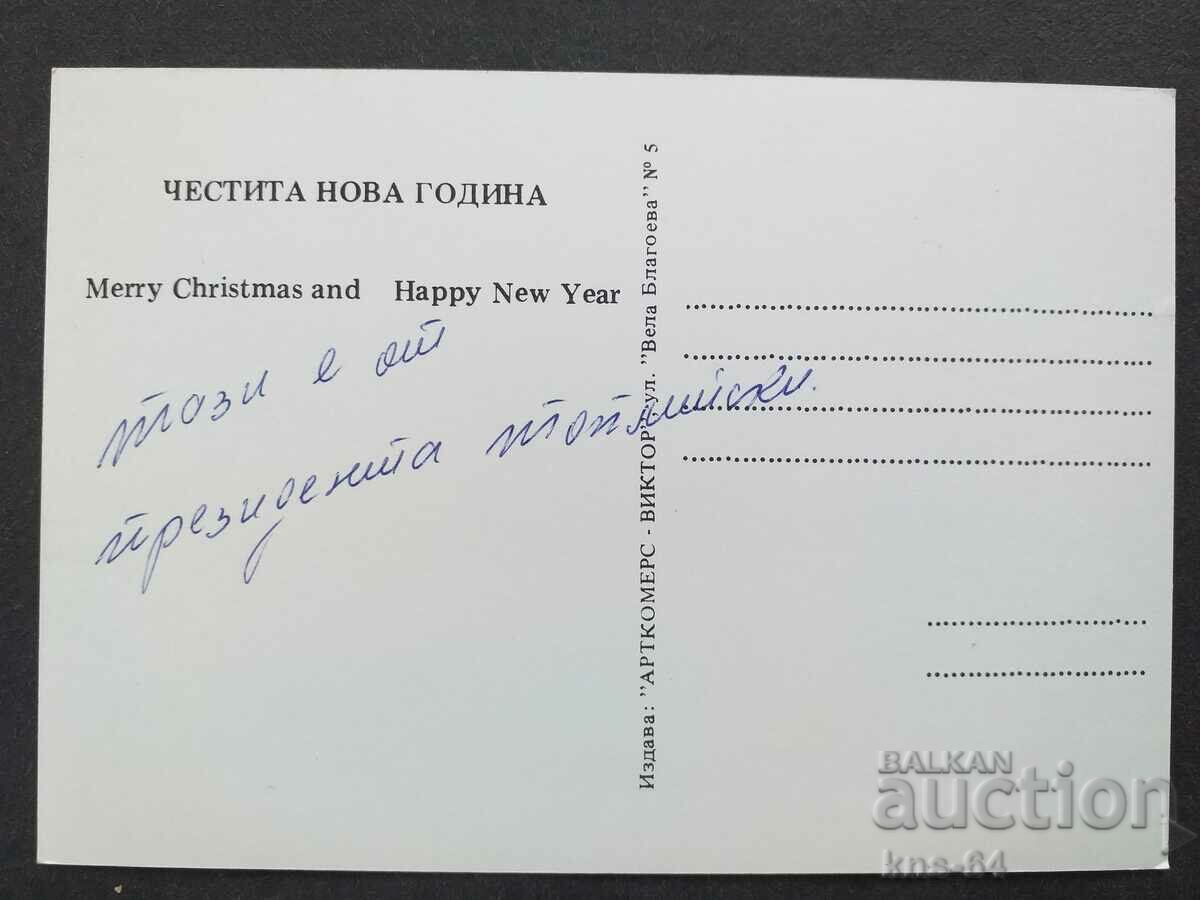 ЧЕСТИТА НОВА ГОДИНА
Merry Christmas and Happy New Year
тази е от
президента
Издава: "АРТКОМЕРС - ВИКТОР", ул. "Вела Благоева" № 5
BALKAN
auction
kns-64